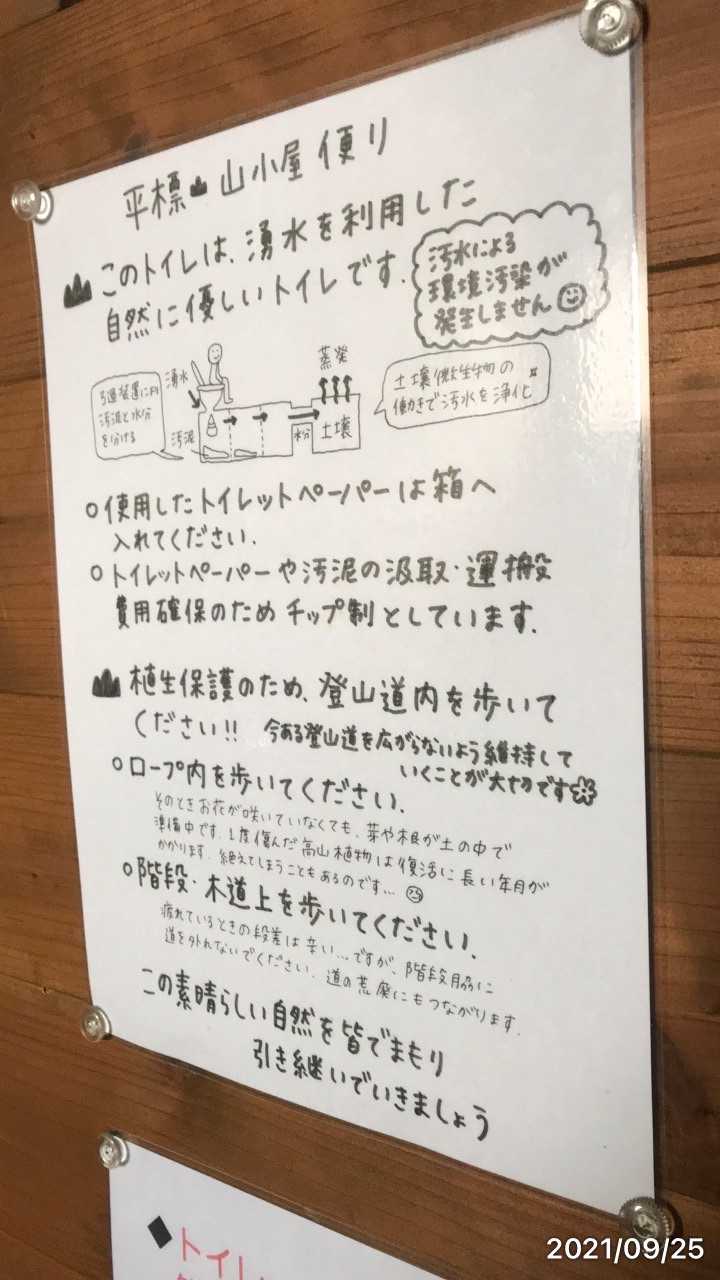 平標 山小屋 便り
このトイレは、湧水を利用した
自然に優しいトイレです.
汚水による
環境汚染が
発生しません
湧水
汚泥と水分
を分ける
汚泥
蒸発
水分
土壌
土壌微生物の
働きで汚水を浄化
○使用したトイレットペーパーは箱へ
入れてください.
○トイレットペーパーや汚泥の汲取・運搬
費用確保のためチップ制としています.
植生保護のため、登山道内を歩いて
ください!!
今ある登山道を広がらないよう維持して
いくことが大切です
○ロープ内を歩いてください.
そのときお花が咲いていなくても、芽や根が土の中で
準備中です. 1度傷んだ高山植物は復活に長い年月が
かかります. 絶えてしまうこともあるのです…
○階段・木道上を歩いてください.
疲れているときの段差は辛い…ですが、階段脇に
道を外れないでください. 道の荒廃にもつながります.
この素晴らしい自然を皆でまもり
引き継いでいきましょう
◆トイレ
2021/09/25